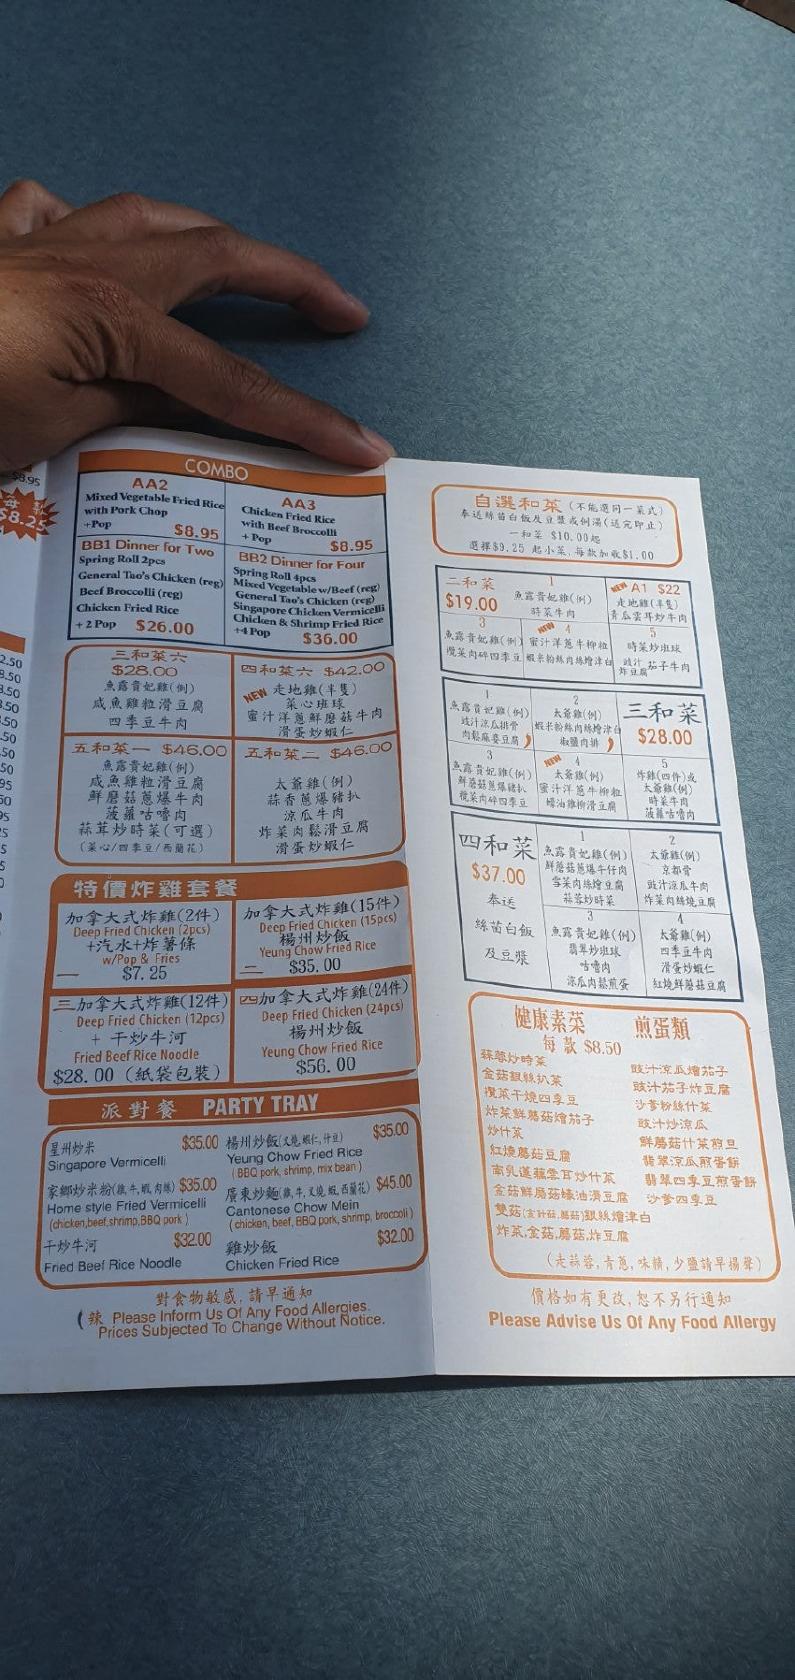 $8.95
每 款
$8.25
COMBO
AA2
Mixed Vegetable Fried Rice
with Pork Chop
+Pop
$8.95
AA3
Chicken Fried Rice
with Beef Broccolli
+ Pop
$8.95
BB1 Dinner for Two
Spring Roll 2pcs
General Tao's Chicken (reg)
Beef Broccolli (reg)
Chicken Fried Rice
+ 2 Pop $26.00
BB2 Dinner for Four
Spring Roll 4pcs
Mixed Vegetable w/Beef (reg)
General Tao's Chicken (reg)
Singapore Chicken Vermicelli
Chicken & Shrimp Fried Rice
+4 Pop $36.00
三和菜六
$28.00
魚露貴妃雞(例)
咸魚雞粒滑豆腐
四季豆牛肉
四和菜六 $42.00
NEW 走地雞(半隻)
菜心班球
蜜汁洋蔥鮮蘑菇牛肉
滑蛋炒蝦仁
五和菜一 $46.00
魚露貴妃雞(例)
咸魚雞粒滑豆腐
鮮蘑菇蔥爆牛肉
菠蘿咕嚕肉
蒜茸炒時菜(可選)
(菜心/四季豆/西蘭花)
五和菜二 $46.00
太爺雞(例)
蒜香蔥爆豬扒
涼瓜牛肉
炸菜肉鬆滑豆腐
滑蛋炒蝦仁
特價炸雞套餐
加拿大式炸雞(2件)
Deep Fried Chicken (2pcs)
+汽水+炸薯條
w/Pop & Fries
一 $7.25
加拿大式炸雞(15件)
Deep Fried Chicken (15pcs)
楊州炒飯
Yeung Chow Fried Rice
二 $35.00
三加拿大式炸雞(12件)
Deep Fried Chicken (12pcs)
+ 干炒牛河
Fried Beef Rice Noodle
$28.00 (紙袋包裝)
四加拿大式炸雞(24件)
Deep Fried Chicken (24pcs)
楊州炒飯
Yeung Chow Fried Rice
$56.00
派對餐 PARTY TRAY
星州炒米 $35.00
Singapore Vermicelli
家鄉炒米粉(雞,牛,蝦,肉絲) $35.00
Home style Fried Vermicelli
(chicken,beef,shrimp,BBQ pork )
干炒牛河 $32.00
Fried Beef Rice Noodle
楊州炒飯(叉燒,蝦仁,什豆) $35.00
Yeung Chow Fried Rice
( BBQ pork, shrimp, mix bean )
廣東炒麵(雞,牛,叉燒,蝦,西蘭花) $45.00
Cantonese Chow Mein
( chicken, beef, BBQ pork, shrimp, broccoli )
雞炒飯 $32.00
Chicken Fried Rice
對食物敏感,請早通知
辣 Please Inform Us Of Any Food Allergies.
Prices Subjected To Change Without Notice.
自選和菜(不能選同一菜式)
奉送絲苗白飯及豆漿或例湯(送完即止)
一和菜 $10.00起
選擇$9.25 起小菜,每款加收$1.00
二和菜
$19.00
1
魚露貴妃雞(例)
時菜牛肉
NEW A1 $22
走地雞(半隻)
青瓜雲耳炒牛肉
3
魚露貴妃雞(例)
欖菜肉碎四季豆
NEW 4
蜜汁洋蔥牛柳粒
蝦米粉絲肉絲燴津白
5
時菜炒班球
豉汁炸豆腐茄子牛肉
1
魚露貴妃雞(例)
豉汁涼瓜排骨
肉鬆麻婆豆腐
2
太爺雞(例)
蝦米粉絲肉絲燴津白
椒鹽肉排
三和菜
$28.00
3
魚露貴妃雞(例)
鮮蘑菇蔥爆豬扒
欖菜肉碎四季豆
NEW 4
太爺雞(例)
蜜汁洋蔥牛柳粒
蠔油雞柳滑豆腐
5
炸雞(四件)或
太爺雞(例)
時菜牛肉
菠蘿咕嚕肉
四和菜
$37.00
奉送
絲苗白飯
及豆漿
1
魚露貴妃雞(例)
鮮蘑菇蔥爆牛仔肉
雪菜肉絲燴豆腐
蒜蓉炒時菜
2
太爺雞(例)
京都骨
豉汁涼瓜牛肉
炸菜肉絲燒豆腐
3
魚露貴妃雞(例)
翡翠炒班球
咕嚕肉
涼瓜肉鬆煎蛋
4
太爺雞(例)
四季豆牛肉
滑蛋炒蝦仁
紅燒鮮蘑菇豆腐
健康素菜 煎蛋類
每 款 $8.50
蒜蓉炒時菜
金菇銀絲扒菜
欖菜干燒四季豆
炸菜鮮蘑菇燴茄子
炒什菜
紅燒蘑菇豆腐
南乳蓮藕雲耳炒什菜
金菇鮮蘑菇蠔油滑豆腐
雙菇(金針菇,蘑菇)銀絲燴津白
炸菜,金菇,蘑菇,炸豆腐
豉汁涼瓜燴茄子
豉汁茄子炸豆腐
沙爹粉絲什菜
豉汁炒涼瓜
鮮蘑菇什菜煎旦
翡翠涼瓜煎蛋餅
翡翠四季豆煎蛋餅
沙爹四季豆
(走蒜蓉,青蔥,味精,少鹽請早揚聲)
價格如有更改,恕不另行通知
Please Advise Us Of Any Food Allergy